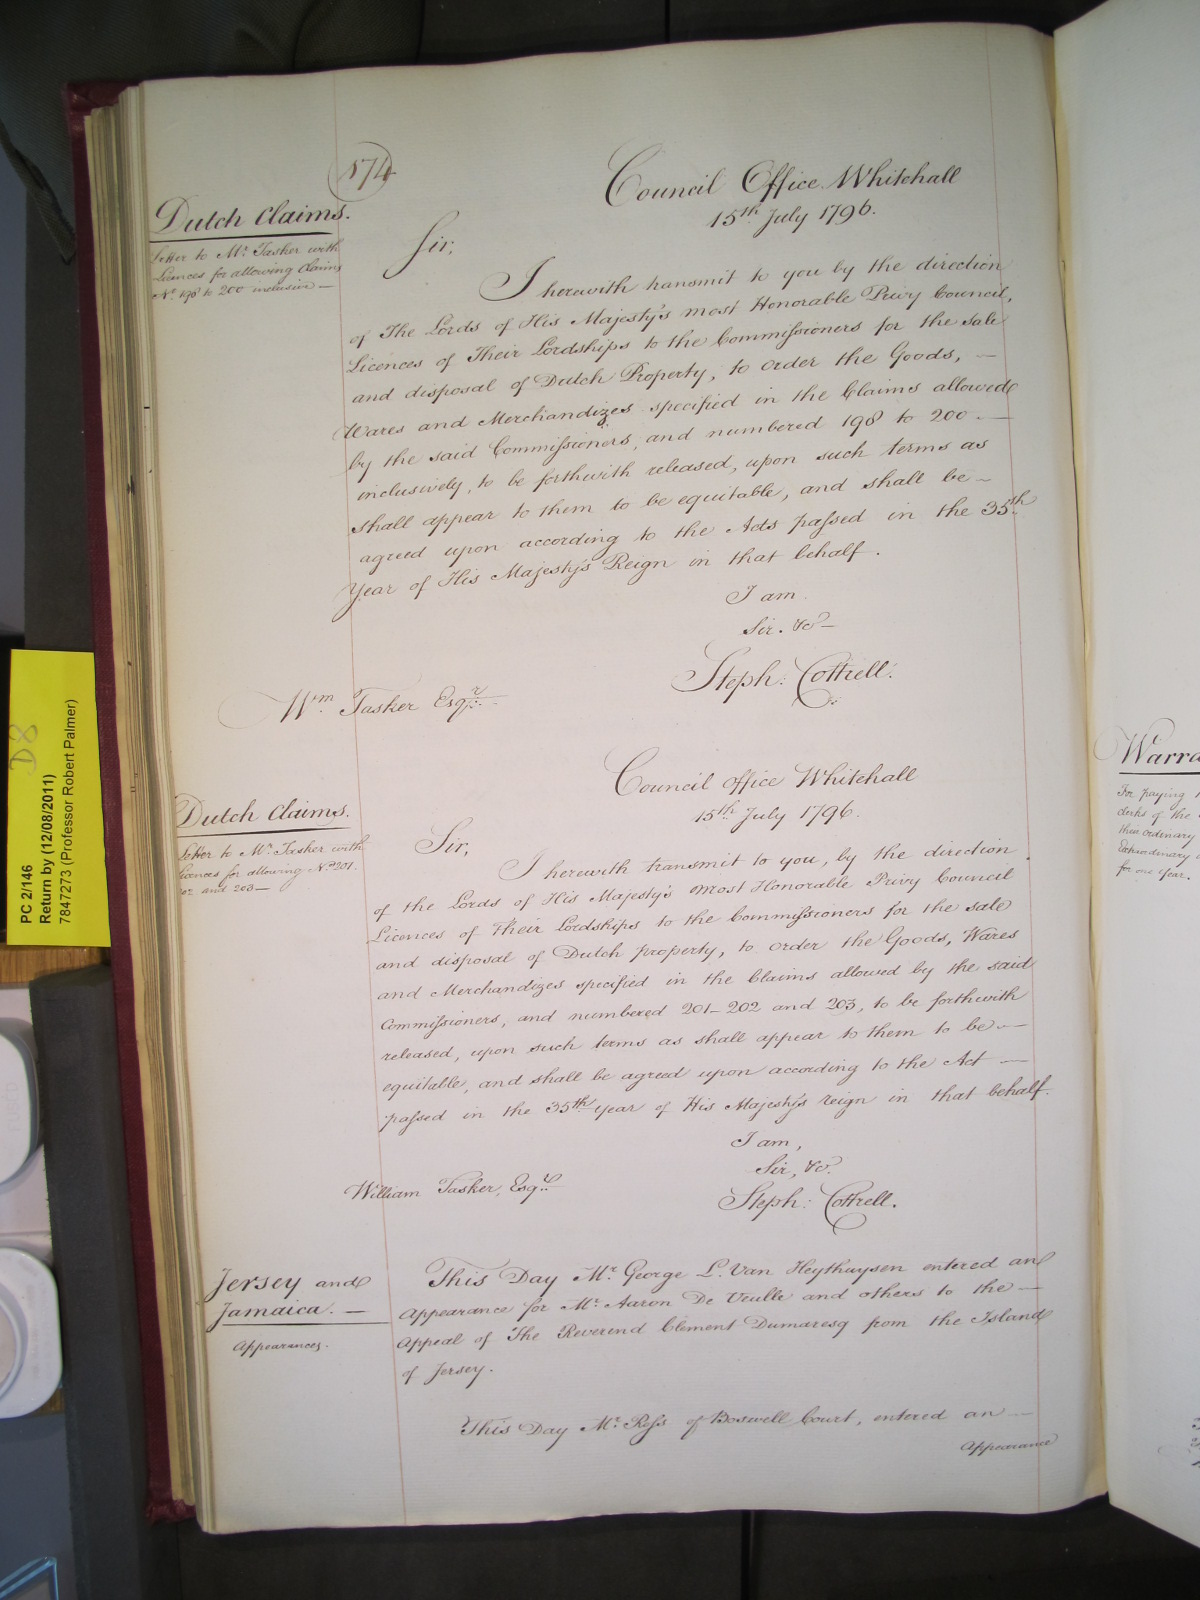 174
Council Office Whitehall
15th July 1796.
Dutch Claims.
Letter to Mr. Tasker with
Licences for allowing Claims
No. 198 to 200 inclusive —
Sir,
I herewith transmit to you by the direction
of The Lords of His Majesty's most Honorable Privy Council,
Licences of Their Lordships to the Commissioners for the Sale
and disposal of Dutch Property, to order the Goods, —
Wares and Merchandizes specified in the Claims allowed
by the said Commissioners, and numbered 198 to 200 —
inclusively, to be forthwith released, upon such terms as
shall appear to them to be equitable, and shall be —
agreed upon according to the Acts passed in the 35th
Year of His Majesty's Reign in that behalf.
I am
Sir. &c —
Steph: Cottrell.
Wm. Tasker Esqr.
Council office Whitehall
15th July 1796.
Dutch Claims.
Letter to Mr. Tasker with
Licences for allowing No. 201.
202 and 203 —
Sir,
I herewith transmit to you, by the direction
of the Lords of His Majesty's Most Honorable Privy Council
Licences of Their Lordships to the Commissioners for the sale
and disposal of Dutch property, to order the Goods, Wares
and Merchandizes specified in the Claims allowed by the said
Commissioners, and numbered 201 – 202 and 203, to be forthwith
released, upon such terms as shall appear to them to be —
equitable, and shall be agreed upon according to the Act —
passed in the 35th year of His Majesty's reign in that behalf.
I am,
Sir, &c.
Steph: Cottrell.
William Tasker, Esqr.
Jersey and
Jamaica. —
Appearances.
This Day Mr. George L. Van Heythuysen entered an
Appearance for Mr. Aaron De Veulle and others to the —
Appeal of The Reverend Clement Dumaresq from the Island
of Jersey.
This Day Mr. Ross of Boswell Court, entered an —
Appearance
D8
PC 2/146
Return by (12/08/2011)
7847273 (Professor Robert Palmer)
Warra
For paying
clerks of the
their ordinary
Extraordinary
for one Year.